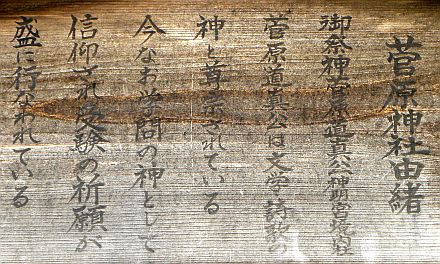 菅原神社由緒
御祭神菅原道真公神明宮境内社
菅原道真公は文学詩歌の
神と尊崇されている
今なお学問の神として
信仰され受験の祈願が
盛に行なわれている